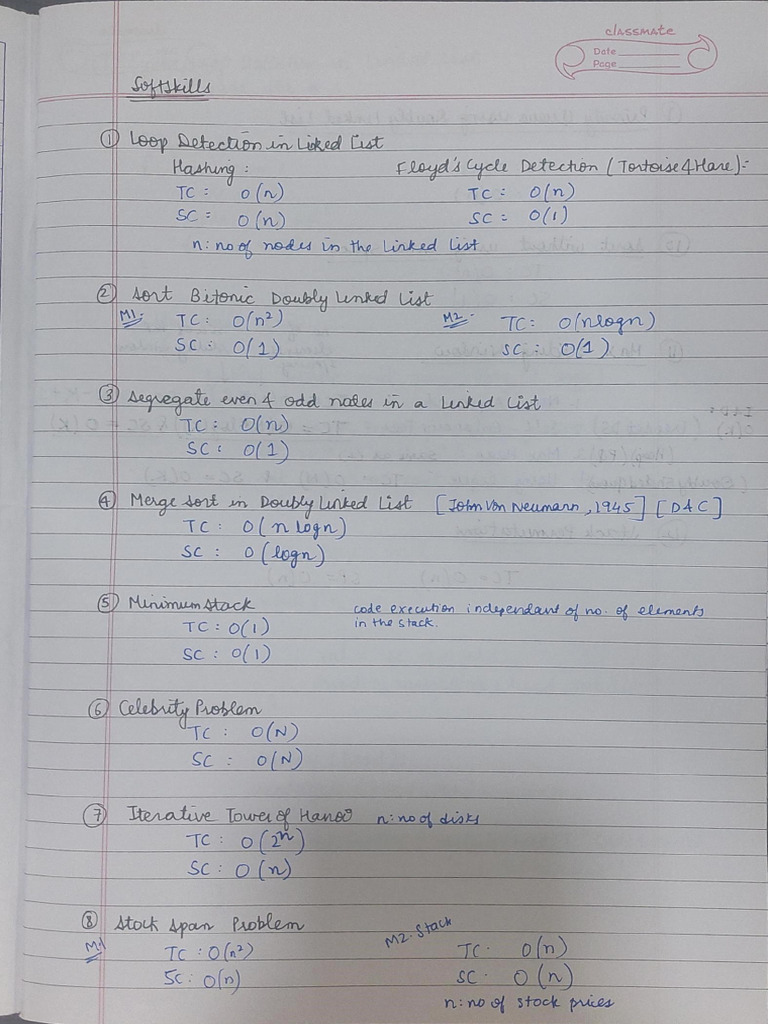 classmate
Date
Page
Softskills
① Loop Detection in Linked List
Hashing : Floyd's Cycle Detection (Tortoise & Hare):-
TC : O(n) TC : O(n)
SC : O(n) SC : O(1)
n: no of nodes in the Linked List
② Sort Bitonic Doubly Linked List
M1:- TC : O(n²) M2:- TC : O(nlogn)
SC : O(1) SC : O(1)
③ Segregate even & odd nodes in a Linked List
TC : O(n)
SC : O(1)
④ Merge Sort in Doubly Linked List [John Von Neumann, 1945] [DAC]
TC : O(n logn)
SC : O(logn)
⑤ Minimum Stack code execution independant of no. of elements
in the stack.
TC : O(1)
SC : O(1)
⑥ Celebrity Problem
TC : O(N)
SC : O(N)
⑦ Iterative Tower of Hanoi n: no of disks
TC : O(2ⁿ)
SC : O(n)
⑧ Stock Span Problem
M1 TC : O(n²) M2. Stack TC . O(n)
SC : O(n) SC . O(n)
n: no of stock prices